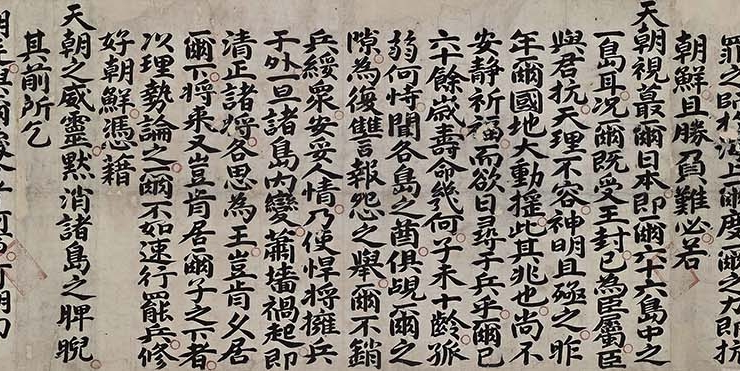 罪之師於海上爾度爾之力即抗
朝鮮且勝負難必若
天朝視蕞爾日本即爾六十六島中之
一島耳況爾既受王封已為臣屬臣
與君抗天理不容神明且殛之昨
年爾國地大動搖此其兆也尚不
安靜祈福而欲日尋于兵乎爾已
六十餘歲壽命幾何子未十齡孤
弱何恃聞各島之酋俱覬爾之
隙為復讐報怨之舉爾不銷
兵綏眾安妥人情乃使悍將擁兵
于外一旦諸島內變蕭墻禍起即
清正諸將各思為王豈肯久居
爾下將來又豈肯居爾子之下者
以理勢論之爾不如速行罷兵修
好朝鮮憑藉
天朝之威靈默消諸島之睥睨
其前所乞